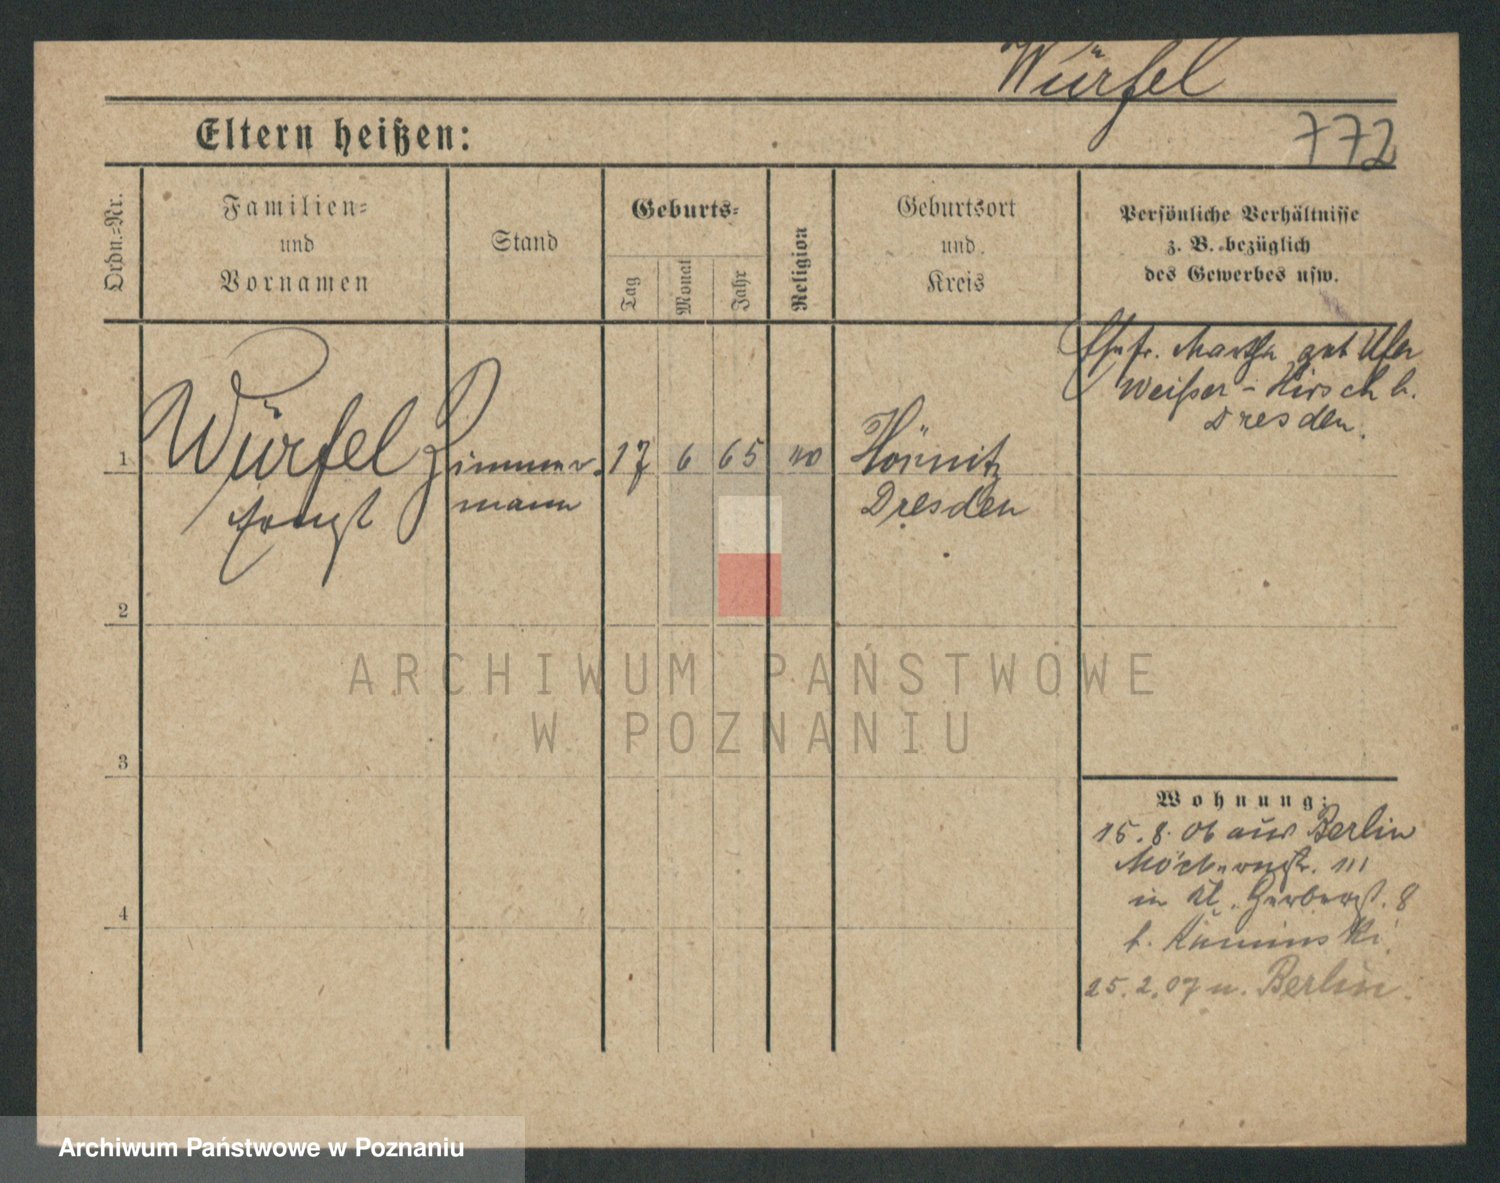 Würfel
Eltern heißen:
772
Ordn.-Nr.
Familien-
und
Vornamen
Stand
Geburts-
Tag
Monat
Jahr
Religion
Geburtsort
und
Kreis
Persönliche Verhältnisse
z. B. bezüglich
des Gewerbes usw.
Ehefr. Martha geb Ufer
Weißer-Hirsch b.
Dresden.
1
Würfel
Zimmer-
mann
17
6
65
Dresden
2
3
4
Wohnung:
15.8.06 aus Berlin
Möckernstr. 111
in Kl. Gerberst. 8
b. Kaminski
25.2.07 n. Berlin.
ARCHIWUM PAŃSTWOWE
W POZNANIU
Archiwum Państwowe w Poznaniu